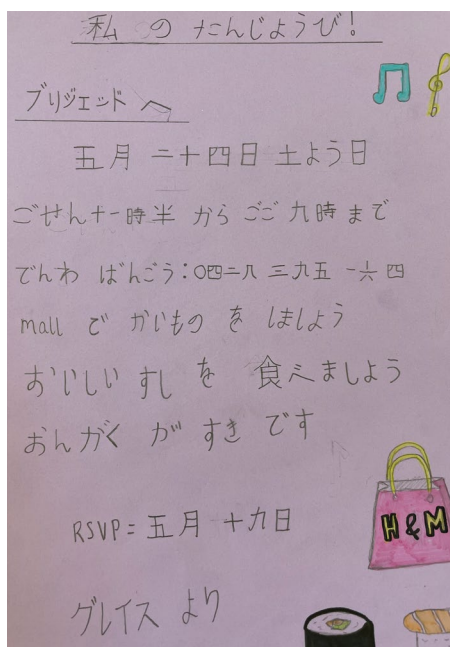 私 の たんじょうび!
ブリジェンド へ
五月 二十四日 土よう日
ごせん十一時半 から ごご 九時 まで
でんわ ばんごう:〇四二八 三九五 一六四
mall で かいもの を しましよう
おいしい すし を 食べましよう
おんがく が すき です
RSVP = 五月 十九日
H&M
グレイス より